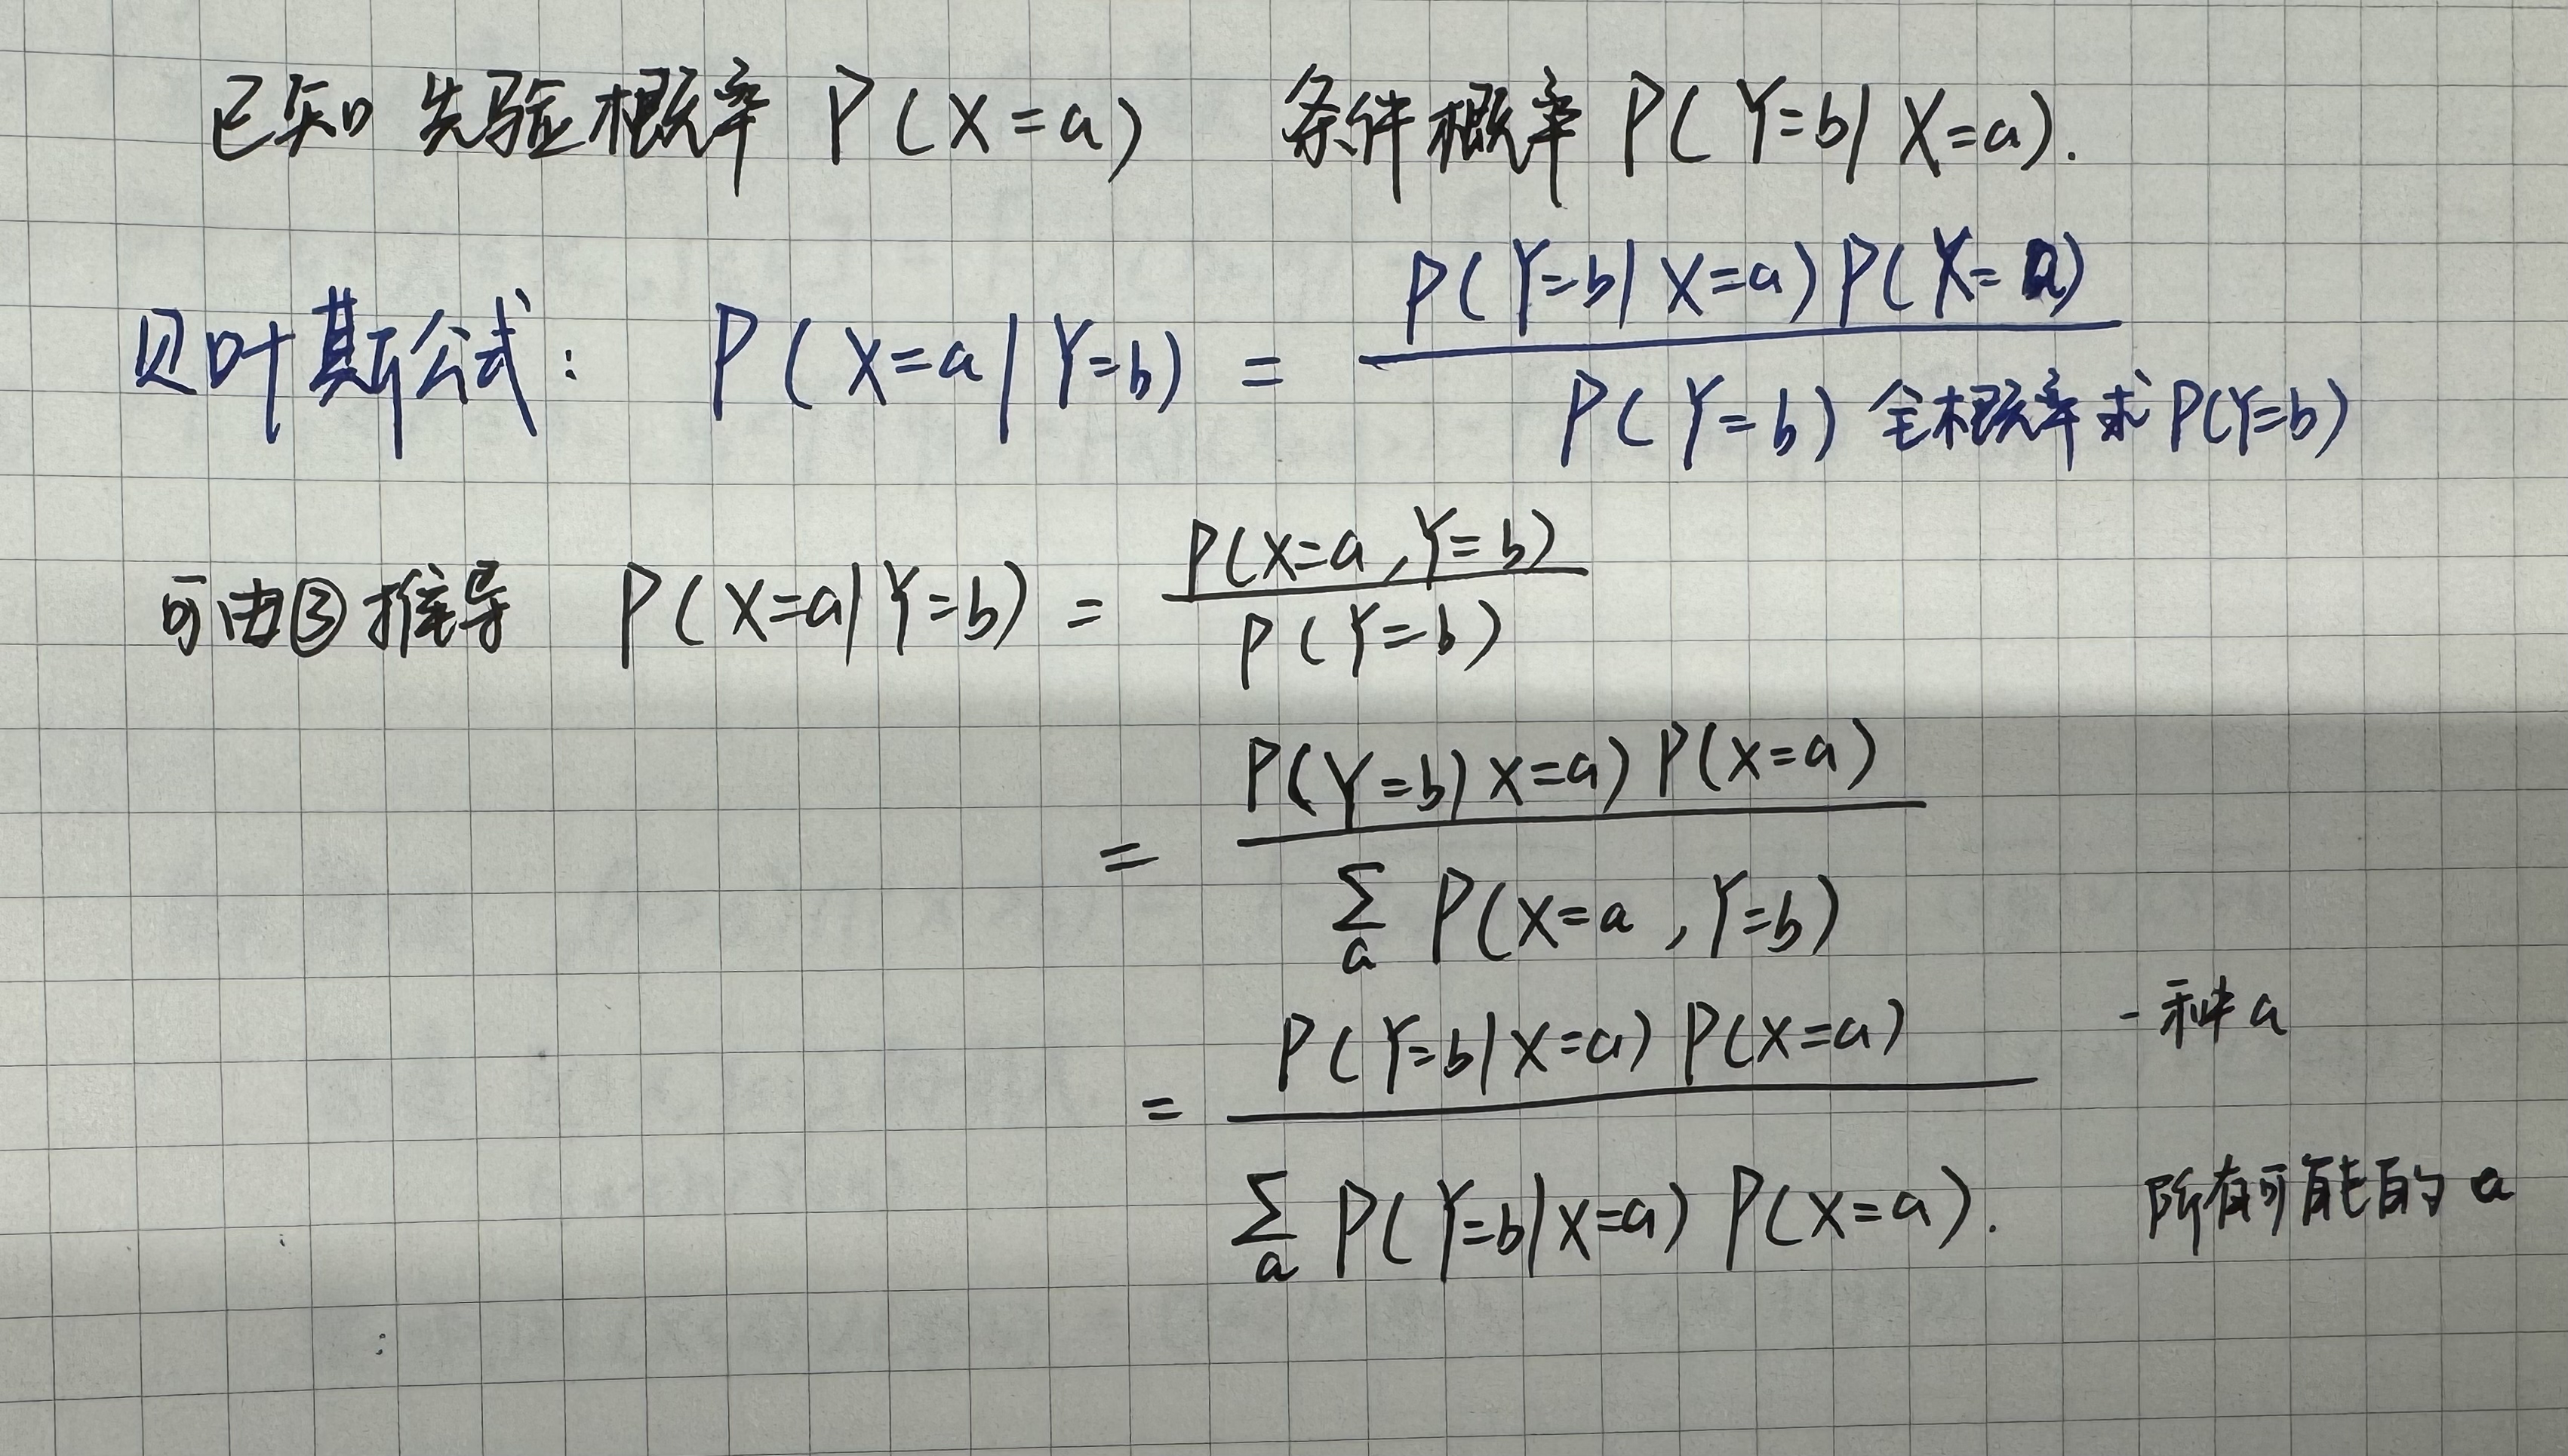 已知 先验概率 P(X=a) 条件概率 P(Y=b|X=a).
贝叶斯公式: P(X=a|Y=b) = P(Y=b|X=a)P(X=a)
P(Y=b) 全概率求P(Y=b)
可由③推导 P(X=a|Y=b) = P(X=a,Y=b)
P(Y=b)
= P(Y=b|X=a)P(X=a)
∑a P(X=a,Y=b)
= P(Y=b|X=a)P(X=a) 一种a
∑a P(Y=b|X=a)P(X=a). 所有可能的a